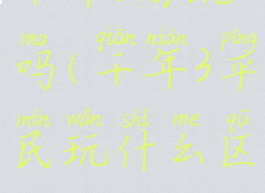 ma qiān nián píng
吗(千年3平
mín wán shí me qū
民玩什么区